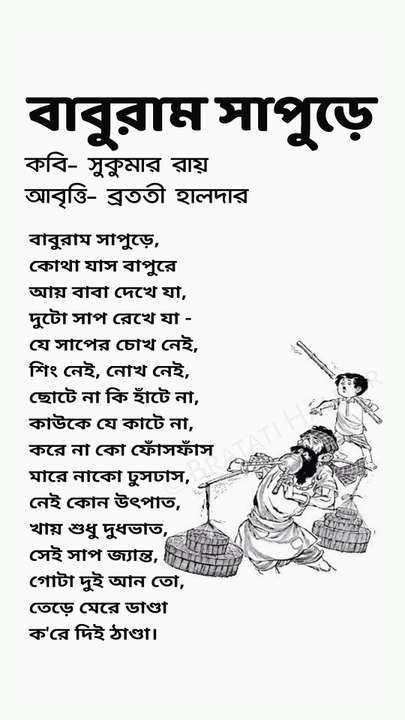 বাবুরাম সাপুড়ে
কবি- সুকুমার রায়
আবৃত্তি- ব্রততী হালদার
বাবুরাম সাপুড়ে,
কোথা যাস বাপুরে
আয় বাবা দেখে যা,
দুটো সাপ রেখে যা -
যে সাপের চোখ নেই,
শিং নেই, নোখ নেই,
ছোটে না কি হাঁটে না,
কাউকে যে কাটে না,
করে না কো ফোঁসফাঁস
মারে নাকো ঢুসঢাস,
নেই কোন উৎপাত,
খায় শুধু দুধভাত,
সেই সাপ জ্যান্ত,
গোটা দুই আন তো,
তেড়ে মেরে ডাণ্ডা
ক'রে দিই ঠাণ্ডা।